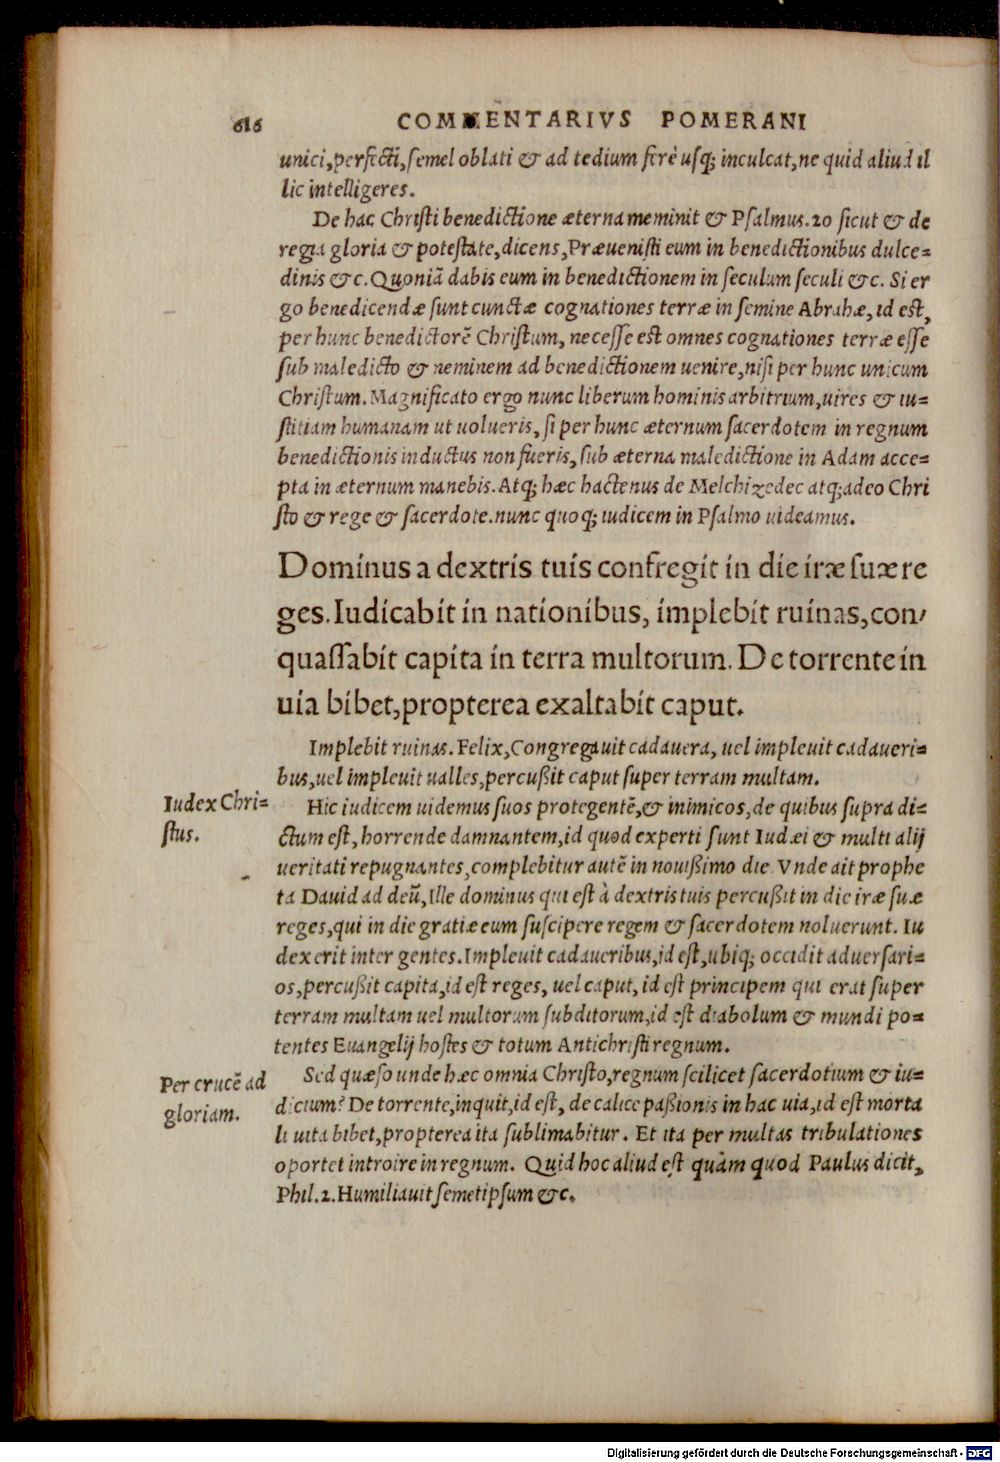 616 COMMENTARIVS POMERANI
unici,perfecti,semel oblati & ad tedium ferè usq; inculcat,ne quid aliud il
lic intelligeres.
De hac Christi benedictione æterna meminit & Psalmus.20 sicut & de
regia gloria & potestate,dicens,Præuenisti eum in benedictionibus dulce=
dinis &c.Quoniā dabis eum in benedictionem in seculum seculi &c. Si er
go benedicendæ sunt cunctæ cognationes terræ in semine Abrahæ,id est,
per hunc benedictorē Christum, necesse est omnes cognationes terræ esse
sub maledicto & neminem ad benedictionem uenire,nisi per hunc unicum
Christum.Magnificato ergo nunc liberum hominis arbitrium,uires & iu=
stitiam humanam ut uolueris, si per hunc æternum sacerdotem in regnum
benedictionis inductus non fueris, sub æterna maledictione in Adam acce=
pta in æternum manebis.Atq; hæc hactenus de Melchizedec atq;adeo Chri
sto & rege & sacerdote.nunc quoq; iudicem in Psalmo uideamus.
Dominus a dextris tuis confregit in die iræ suæ re
ges.Iudicabit in nationibus, implebit ruinas,con/
quassabit capita in terra multorum. De torrente in
uia bibet,propterea exaltabit caput.
Implebit ruinas. Felix,Congregauit cadauera, uel impleuit cadaueri=
bus,uel impleuit ualles,percußit caput super terram multam.
Iudex Chri=
stus.
Hic iudicem uidemus suos protegentē,& inimicos,de quibus supra di=
ctum est, horrende damnantem,id quod experti sunt Iudæi & multi alij
ueritati repugnantes,complebitur autē in nouißimo die. Vnde ait prophe
ta Dauid ad deū,Ille dominus qui est à dextris tuis percußit in die iræ suæ
reges,qui in die gratiæ eum suscipere regem & sacerdotem noluerunt. Iu
dex erit inter gentes.Impleuit cadaueribus,id est,ubiq; occidit aduersari=
os,percußit capita,id est reges, uel caput, id est principem qui erat super
terram multam uel multorum subditorum,id est diabolum & mundi po=
tentes Euangelij hostes & totum Antichristi regnum.
Per crucē ad
gloriam.
Sed quæso unde hæc omnia Christo,regnum scilicet sacerdotium & iu=
dicium? De torrente,inquit,id est, de calice paßionis in hac uia,id est morta
li uita bibet,propterea ita sublimabitur. Et ita per multas tribulationes
oportet introire in regnum. Quid hoc aliud est quàm quod Paulus dicit,
Phil.2.Humiliauit semetipsum &c.
Digitalisierung gefördert durch die Deutsche Forschungsgemeinschaft - DFG